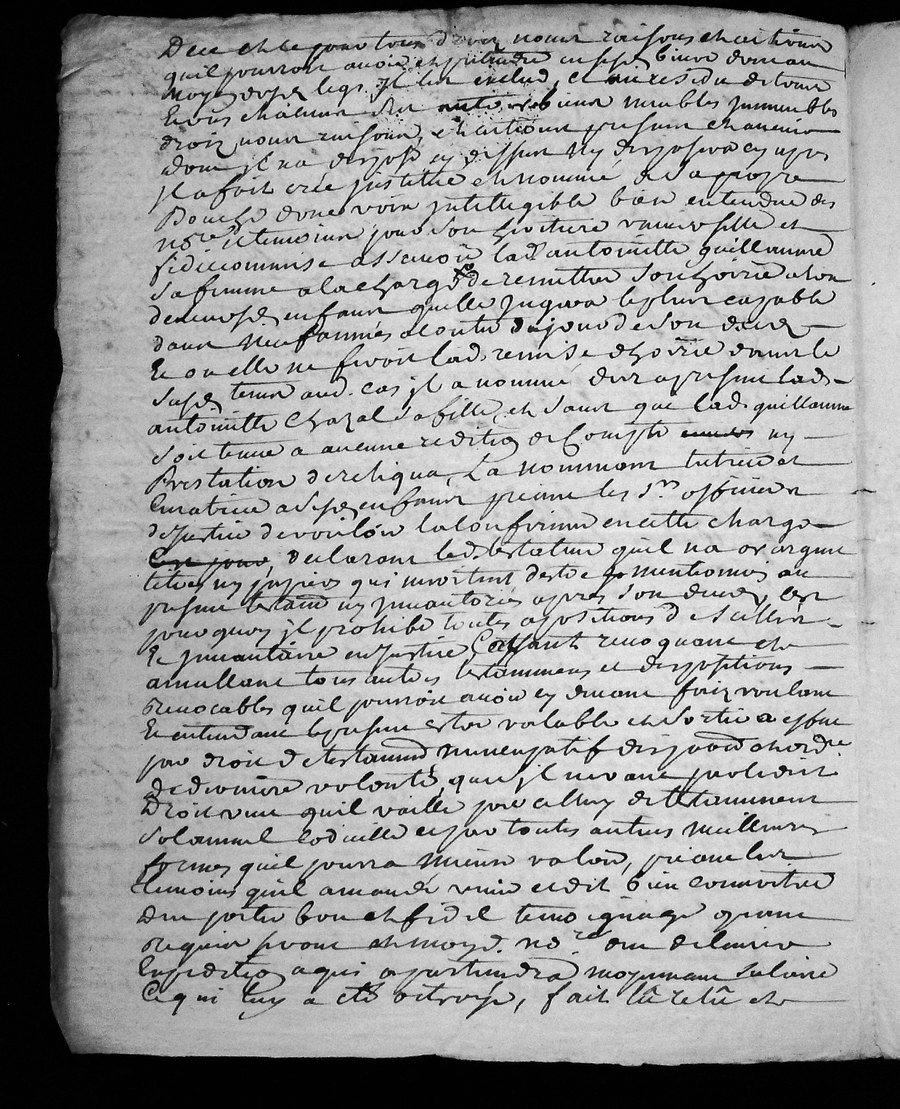 Dece chef pour tous droiz noms raisons et actions
qu'il pourroit avoir et pretendre en ses biens donnan
moyen desd. legs jl les exclud, et au residu de tous
Et uns chacuns ses autres biens meubles jmmeubles
droiz noms raisons, et actions presens et avenir
dont jl na dispose cy dessus ny disposera cy apres
jl a fait cree jnstitué et nommé de sa propre
Bouche donc voix jntelligible bien entendue des
no.re et temoins pour son heritiere universelle et
fideicommise assavoir lad. antoinette guillaume
sa femme a la charge de remettre son hoirie a l'un
de leurs enfans quelle jugera le plus capable
dans neuf années a conter du jour de son deces
Et ou elle ne feroit lad. remise d'hoirie dans le
susd. temps aud. cas jl a nommé des a present lad.
antoinette Chazal sa fille, et sans que lad. guillaume
soit tenue a aucune reddition de Compte ny
Prestation de reliqua, La nommant tutrice et
Curatrice a sesd. enfans priant les s.rs officiers
de justice de vouloir la confirmer en cette charge
declarant led. testateur qu'il na or argent
titres ny papiers qui meritent destre mentionnés au
present testam. ny jnvantoriés apres son deces, cest
pourquoy jl prohibe toutes apositions de scelles
Et jnvantaire en justice Cassant revoquant et
annullant tous autres testammens et dispositions
revocables quil pourroit avoir cy devant faiz voulant
Et entendant le present estre valable et sortir a effet
par droit de testament nuncupatif disposition et ordre
de derniere volonté, que sil ne vaut par ledit
Droit veut quil vaille par celluy de testamment
solamnel codicille et par toutes autres meilleures
formes quil pourra mieux valoir, priant les
temoins quil a mandé venir et dit bien connoitre
d'en porter bon et fidel temoignage quant
requis seront et moyd. no.re den delivrer
Expedition a qui apartiendra moyennant salaire
Ce qui luy a eté octroyé, fait lû relû et